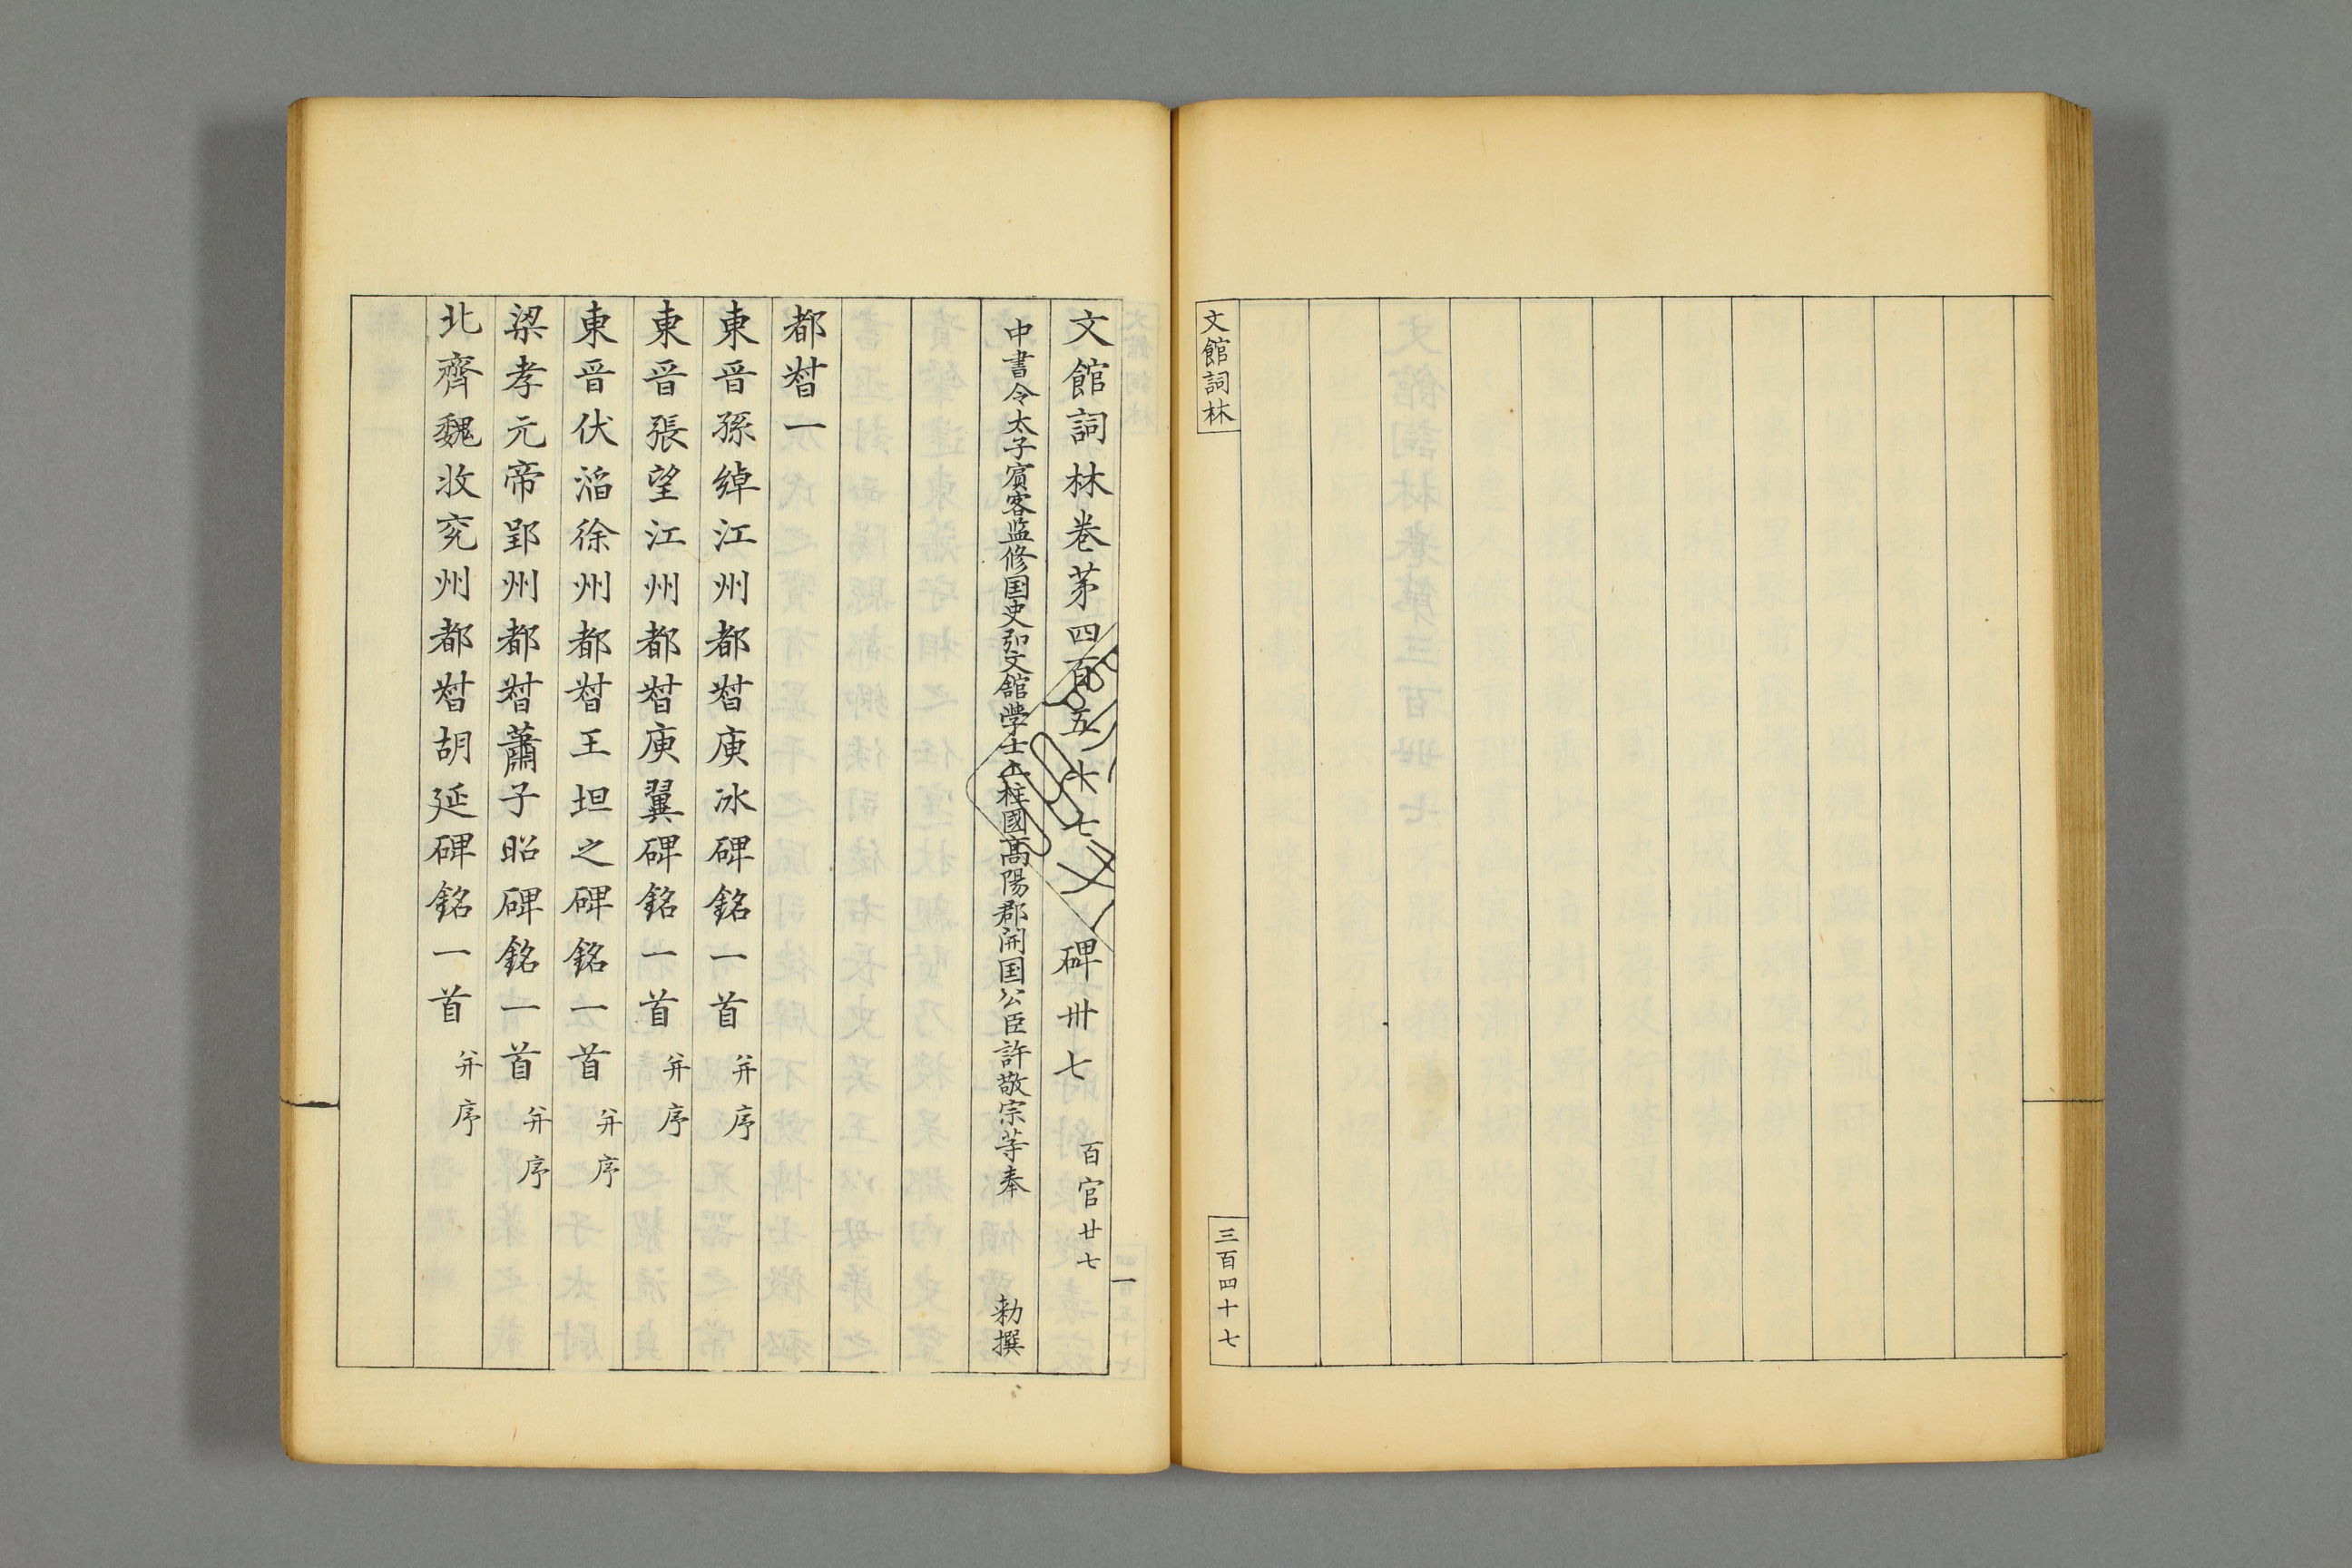 文館詞林
三百四十七
文館詞林卷苐四百五十七 碑卅七 百官廿七
中書令太子賓客监修国史弘文館學士上柱國髙陽郡開国公臣許敬宗等奉 勅撰
都督一
東晉孫綽江州都督庾冰碑銘一首 并序
東晉張望江州都督庾翼碑銘一首 并序
東晉伏滔徐州都督王坦之碑銘一首 并序
梁孝元帝郢州都督蕭子昭碑銘一首 并序
北齊魏收兖州都督胡延碑銘一首 并序